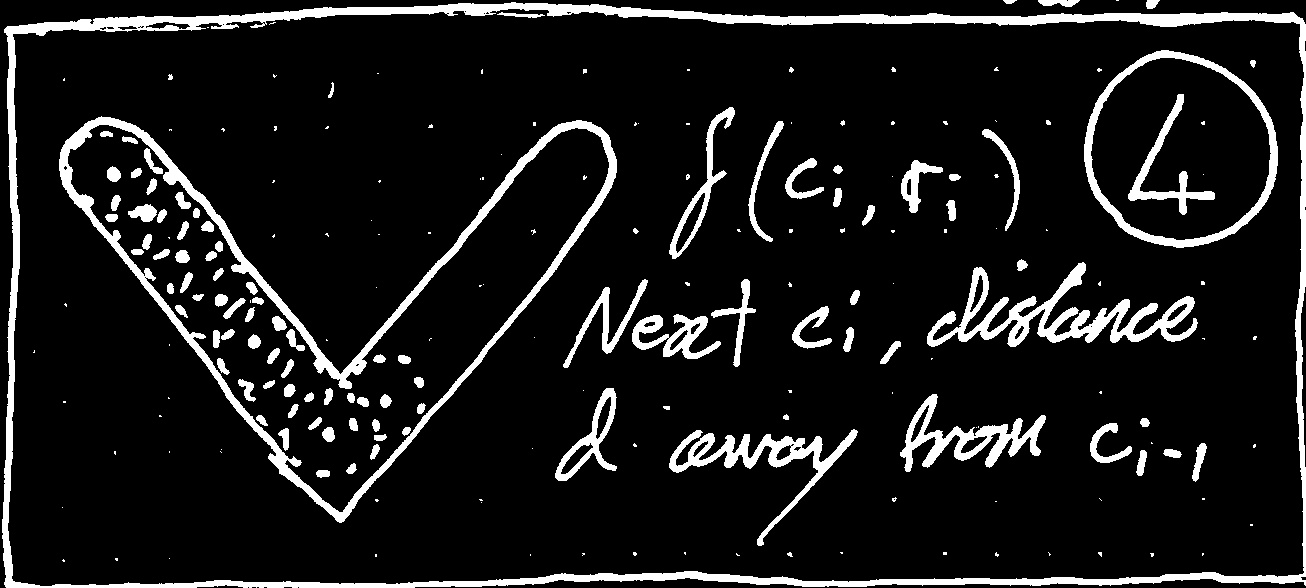 f(ci, ri)
4
Next ci, distance
d away from ci-1